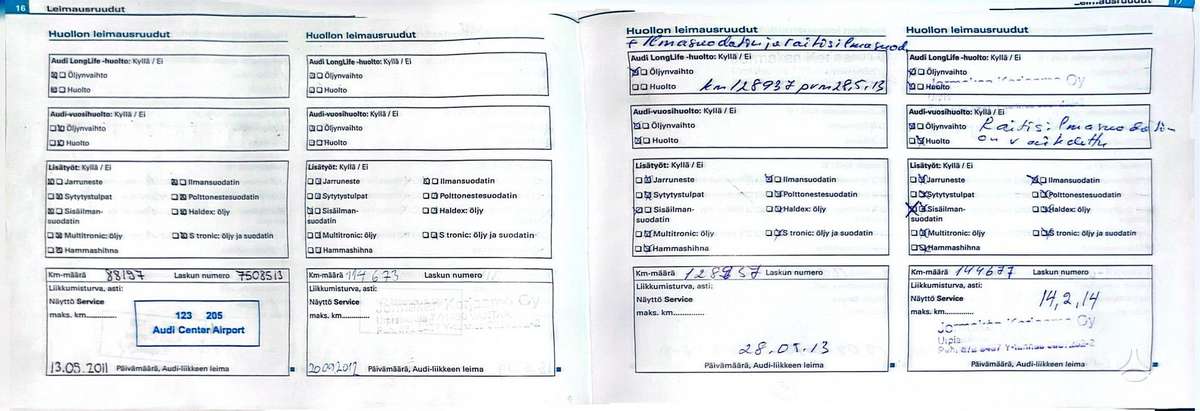 16 Leimausruudut
Huollon leimausruudut
Audi LongLife -huolto: Kyllä / Ei
Öljynvaihto
Huolto
Audi-vuosihuolto: Kyllä / Ei
Öljynvaihto
Huolto
Lisätyöt: Kyllä / Ei
Jarruneste Ilmansuodatin
Sytytystulpat Polttonestesuodatin
Sisäilman- Haldex: öljy
suodatin
Multitronic: öljy S tronic: öljy ja suodatin
Hammashihna
Km-määrä 88197 Laskun numero 7508513
Liikkumisturva, asti:
Näyttö Service
maks. km..............
123 205
Audi Center Airport
13.05.2011 Päivämäärä, Audi-liikkeen leima
Huollon leimausruudut
Audi LongLife -huolto: Kyllä / Ei
Öljynvaihto
Huolto
Audi-vuosihuolto: Kyllä / Ei
Öljynvaihto
Huolto
Lisätyöt: Kyllä / Ei
Jarruneste Ilmansuodatin
Sytytystulpat Polttonestesuodatin
Sisäilman- Haldex: öljy
suodatin
Multitronic: öljy S tronic: öljy ja suodatin
Hammashihna
Km-määrä 114673 Laskun numero
Liikkumisturva, asti:
Näyttö Service
maks. km..............
Oy
Päivämäärä, Audi-liikkeen leima
Leimausruudut 17
Huollon leimausruudut
+ Ilmasuodatin ja raitisilmasuod.
Audi LongLife -huolto: Kyllä / Ei
Öljynvaihto
Huolto km 128937 pvm 28.5.13
Audi-vuosihuolto: Kyllä / Ei
Öljynvaihto
Huolto
Lisätyöt: Kyllä / Ei
Jarruneste Ilmansuodatin
Sytytystulpat Polttonestesuodatin
Sisäilman- Haldex: öljy
suodatin
Multitronic: öljy S tronic: öljy ja suodatin
Hammashihna
Km-määrä 128937 Laskun numero
Liikkumisturva, asti:
Näyttö Service
maks. km..............
28.05.13
Päivämäärä, Audi-liikkeen leima
Huollon leimausruudut
Audi LongLife -huolto: Kyllä / Ei
Öljynvaihto
Huolto
Oy
Audi-vuosihuolto: Kyllä / Ei
Öljynvaihto Raitisilmasuodatin
Huolto on vaihdettu
Lisätyöt: Kyllä / Ei
Jarruneste Ilmansuodatin
Sytytystulpat Polttonestesuodatin
Sisäilman- Haldex: öljy
suodatin
Multitronic: öljy S tronic: öljy ja suodatin
Hammashihna
Km-määrä 144677 Laskun numero
Liikkumisturva, asti:
Näyttö Service 14.2.14
maks. km..............
Oy
Päivämäärä, Audi-liikkeen leima